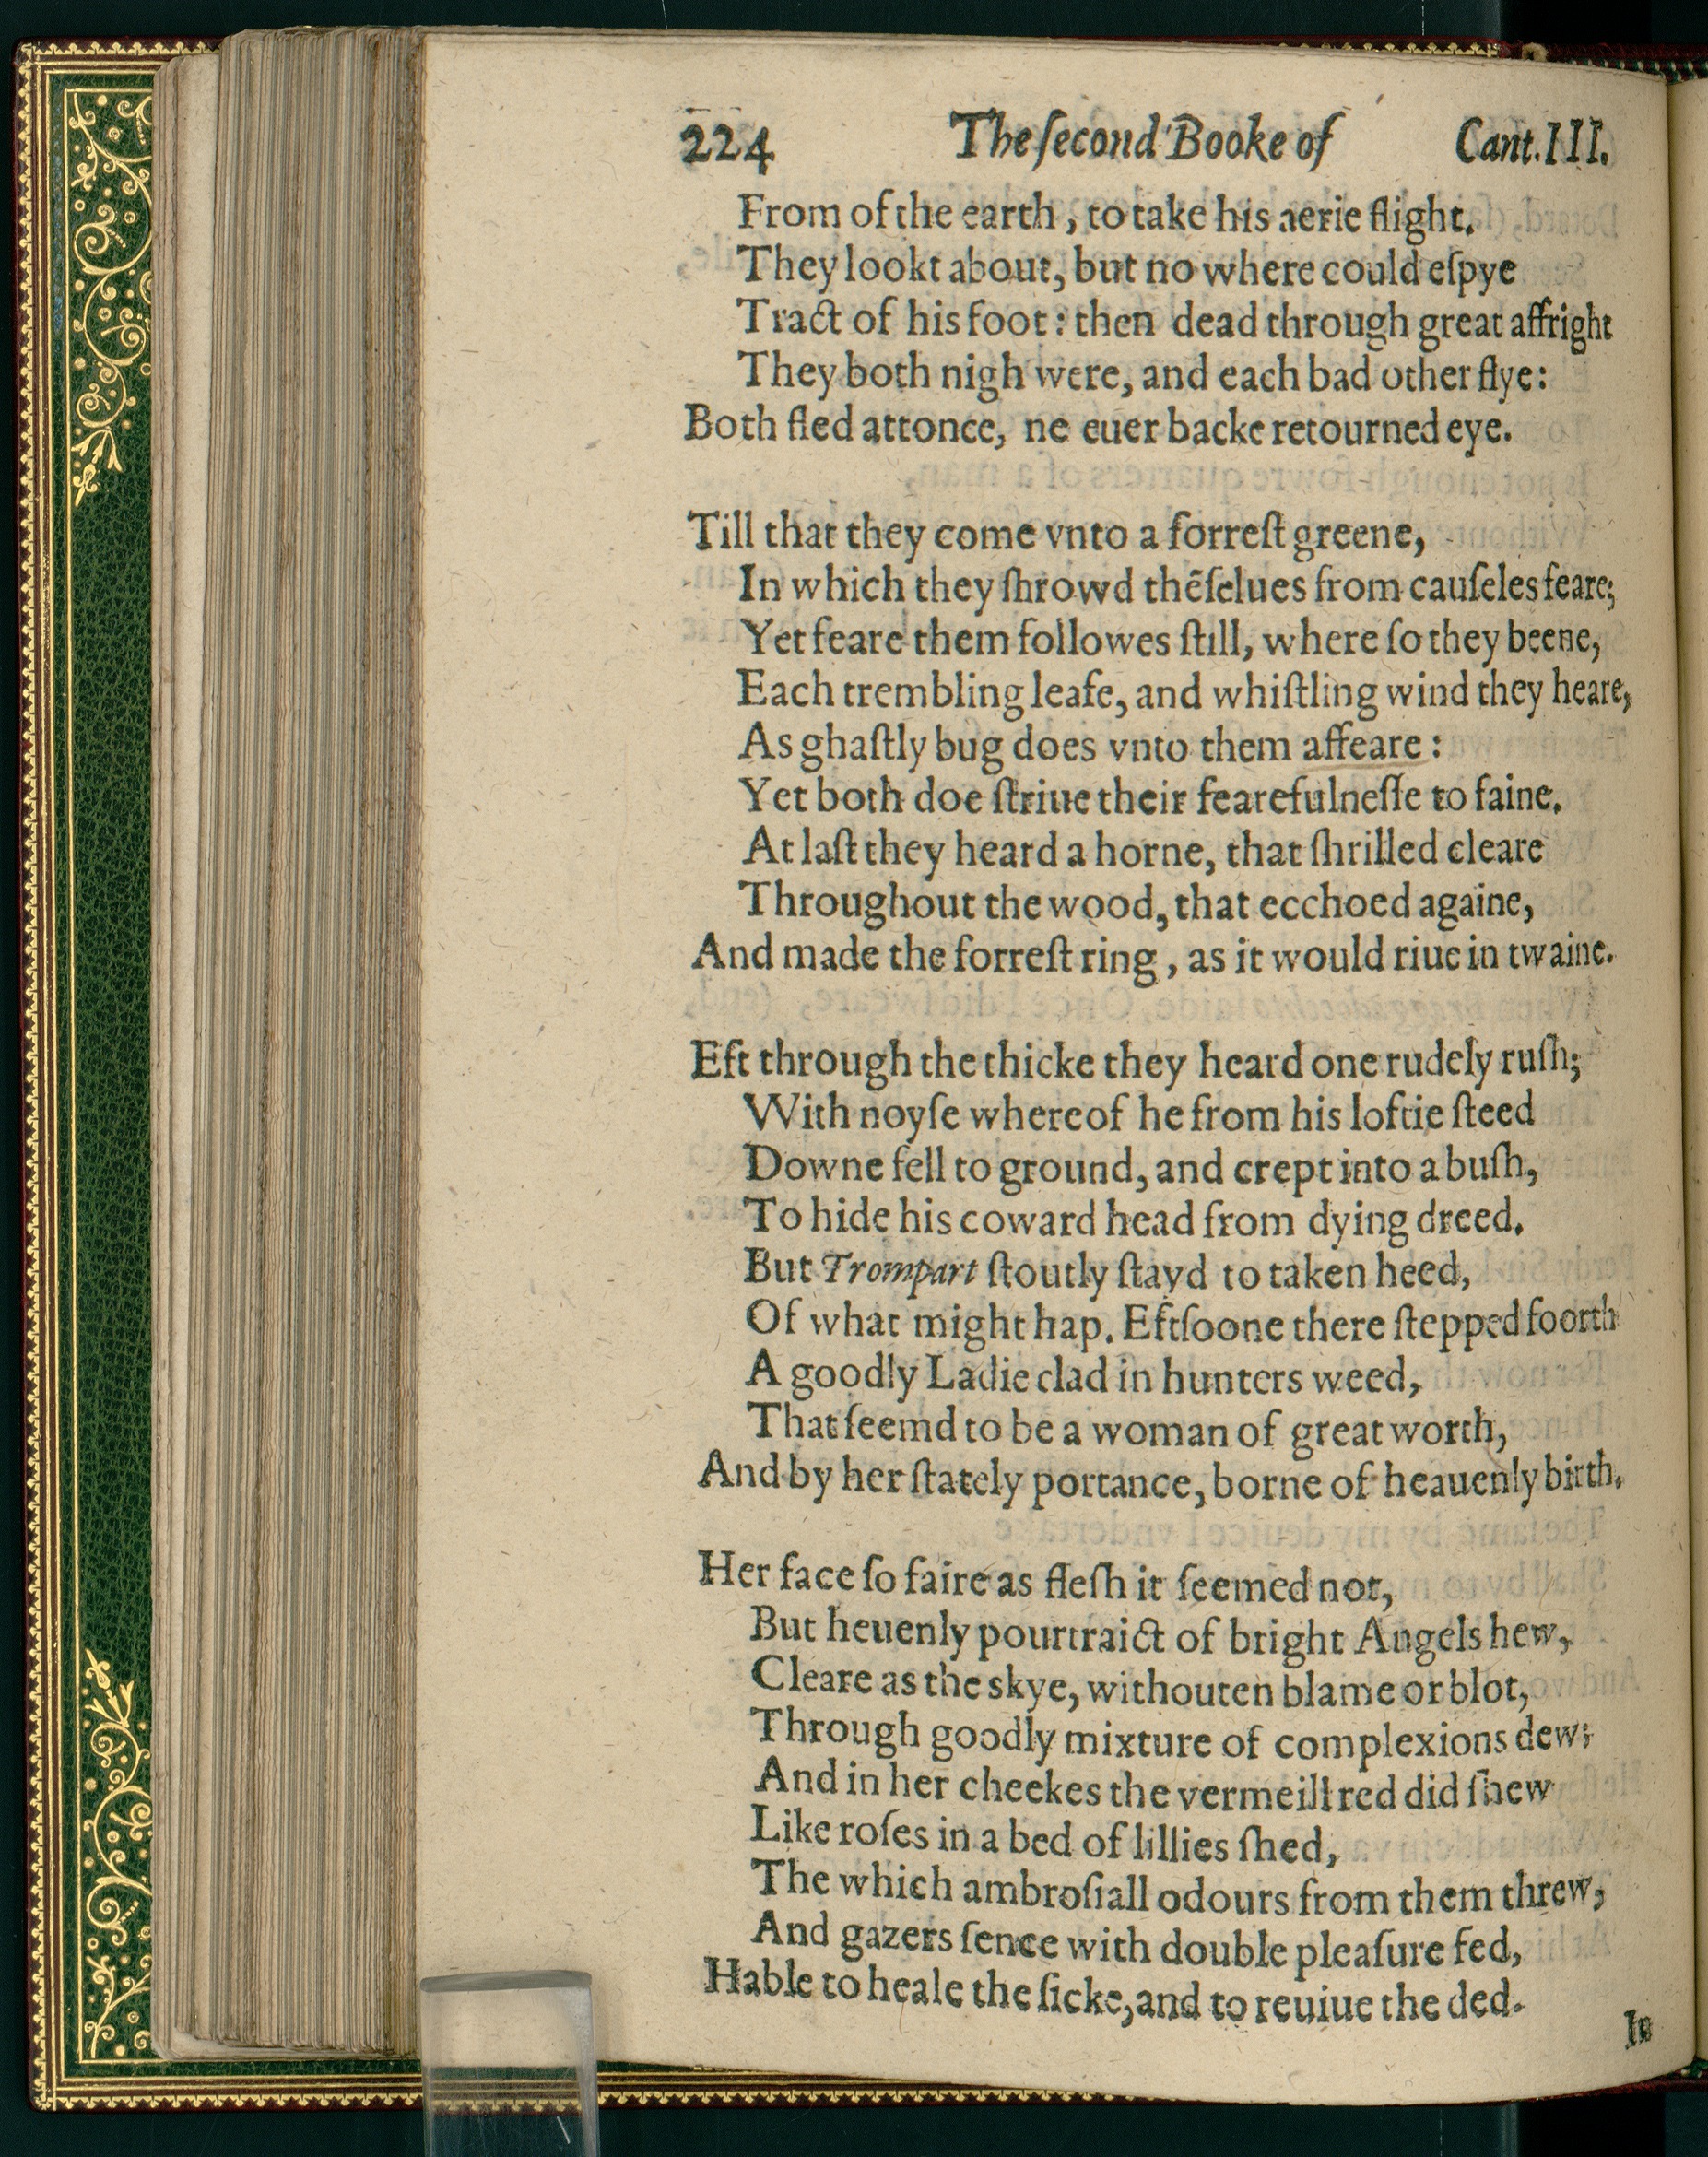 224 The ſecond Booke of Cant. III.
From of the earth, to take his aerie flight.
They lookt about, but no where could eſpye
Tract of his foot: then dead through great affright
They both nigh were, and each bad other flye:
Both fled attonce, ne euer backe retourned eye.
Till that they come vnto a forreſt greene,
In which they ſhrowd thẽſelues from cauſeles feare;
Yet feare them followes ſtill, where ſo they beene,
Each trembling leafe, and whiſtling wind they heare,
As ghaſtly bug does vnto them affeare:
Yet both doe ſtriue their fearefulneſſe to faine.
At laſt they heard a horne, that ſhrilled cleare
Throughout the wood, that ecchoed againe,
And made the forreſt ring, as it would riue in twaine.
Eft through the thicke they heard one rudely ruſh;
With noyſe whereof he from his loftie ſteed
Downe fell to ground, and crept into a buſh,
To hide his coward head from dying dreed.
But Trompart ſtoutly ſtayd to taken heed,
Of what might hap. Eftſoone there ſtepped foorth
A goodly Ladie clad in hunters weed,
That ſeemd to be a woman of great worth,
And by her ſtately portance, borne of heauenly birth.
Her face ſo faire as fleſh it ſeemed not,
But heuenly pourtraict of bright Angels hew,
Cleare as the skye, withouten blame or blot,
Through goodly mixture of complexions dew;
And in her cheekes the vermeill red did ſhew
Like roſes in a bed of lillies ſhed,
The which ambroſiall odours from them threw,
And gazers ſence with double pleaſure fed,
Hable to heale the ſicke, and to reuiue the ded.
In